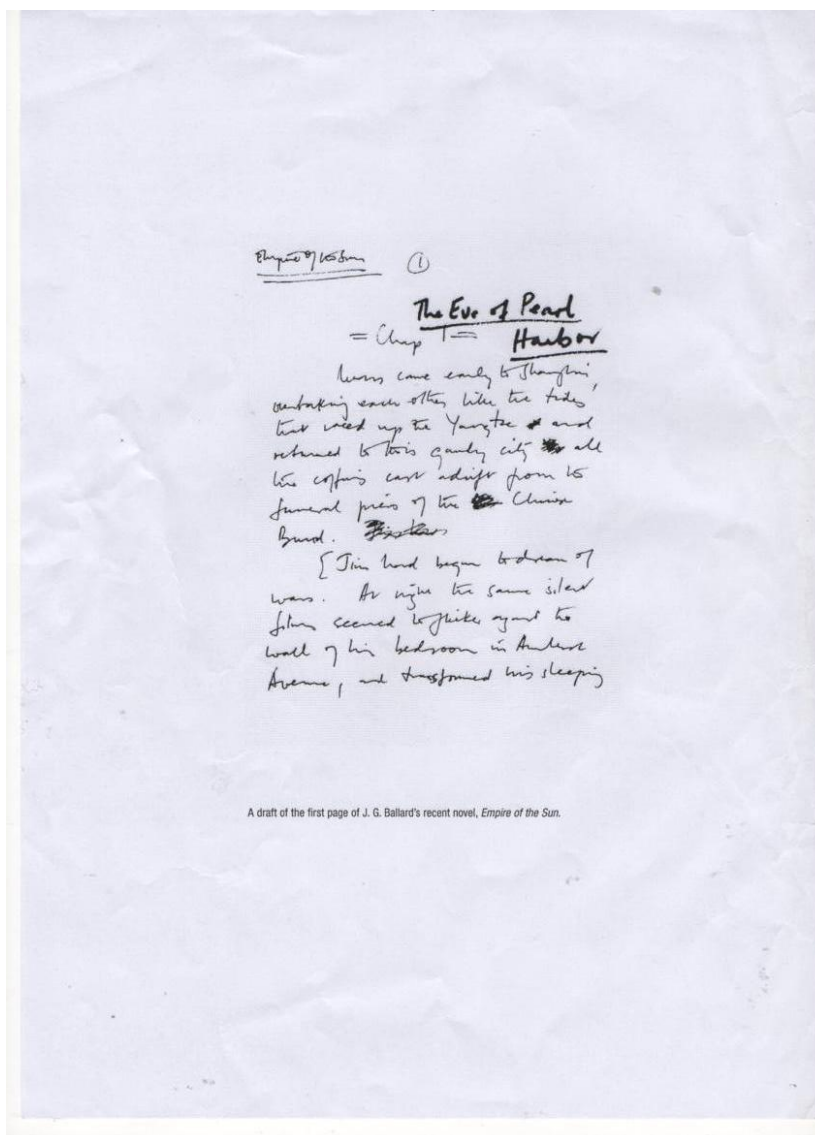 Empire of the Sun
1
The Eve of Pearl
Harbor
= Chap 1 =
Wars came early to Shanghai,
overtaking each other like the tides
that raced up the Yangtze and
returned to this gaudy city all
the coffins cast adrift from the
funeral piers of the Chinese
Bund.
[ Jim had begun to dream of
wars. At night the same silent
films seemed to flicker against the
wall of his bedroom in Amherst
Avenue, and transformed his sleeping
A draft of the first page of J. G. Ballard's recent novel, Empire of the Sun.